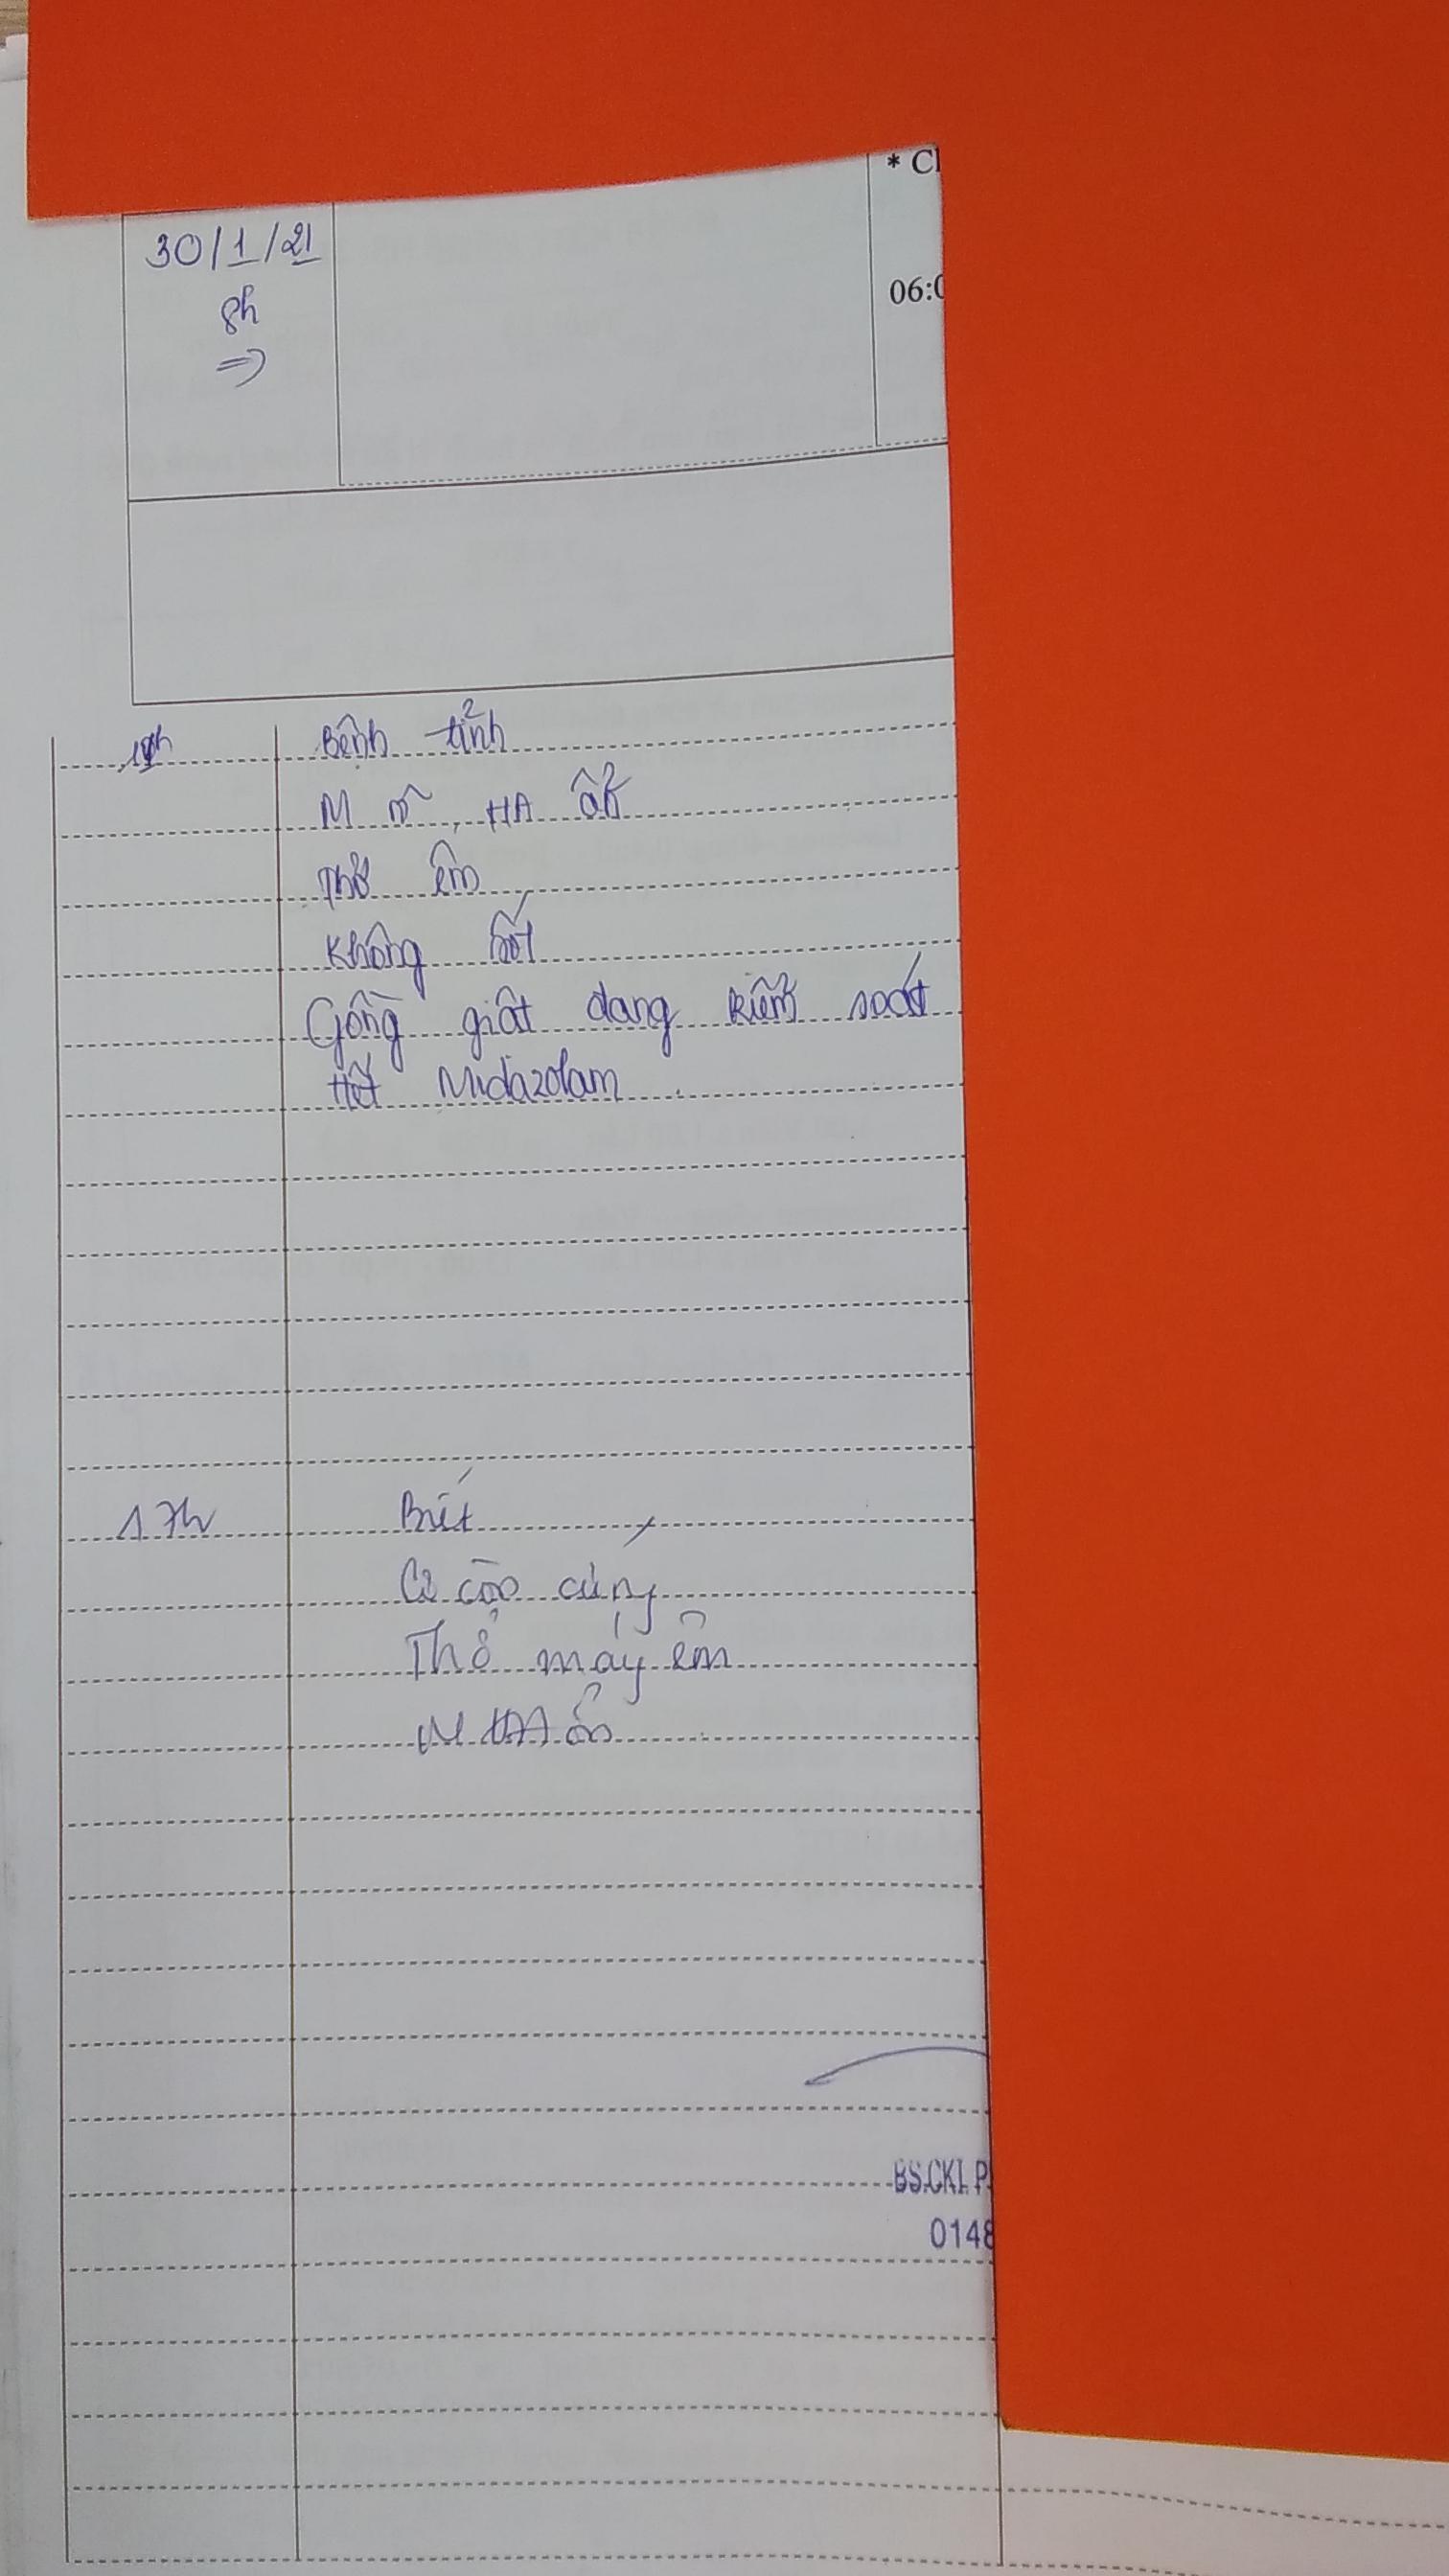 * C
30/1/21
06:0
8h
=>
Bệnh tỉnh
M rõ, HA ổn
Thở êm
Không sốt
Gồng giật đang kiểm soát
Hết Midazolam.
17h
Biết
Cơ còn cứng
Thở máy êm
M HA ổn
BS.CKI. P
0148